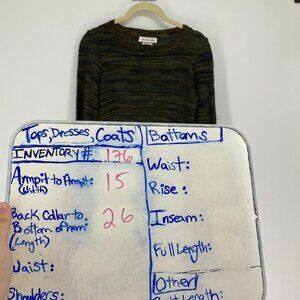 Tops, Dresses, Coats
INVENTORY# 136
Armpit to Armpit: 15
(Width)
Back Collar to 26
Bottom of hem:
(Length)
Waist:
Shoulders:
Bottoms
Waist:
Rise:
Inseam:
Full Length:
Other
Length: